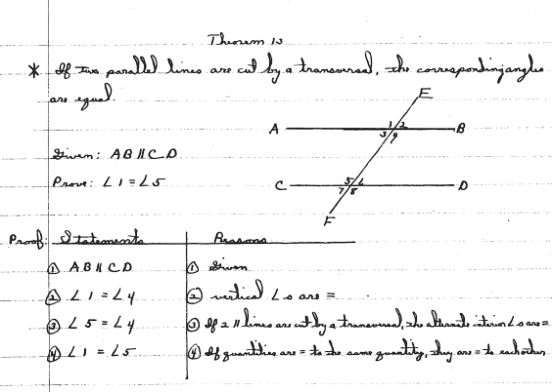 Theorem 13
* If two parallel lines are cut by a transversal, the corresponding angles
are equal.
E
1 2
A B
3 4
Given: AB ∥ CD
Prove: ∠1 = ∠5
5 6
C D
7 8
F
Proof: Statements Reasons
① AB ∥ CD ① Given
② ∠1 = ∠4 ② vertical ∠s are =
③ ∠5 = ∠4 ③ If 2 ∥ lines are cut by a transversal, the alternate interior ∠s are =
④ ∠1 = ∠5 ④ If quantities are = to the same quantity, they are = to each other.